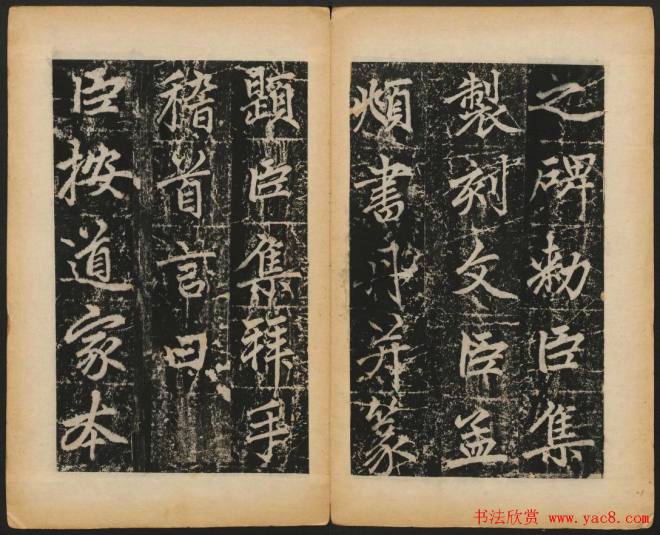 之碑勅臣集
製刻文臣孟
頫書丹并篆
題臣集拜手
稽首言曰
臣按道家本
书法欣赏 www.yac8.com